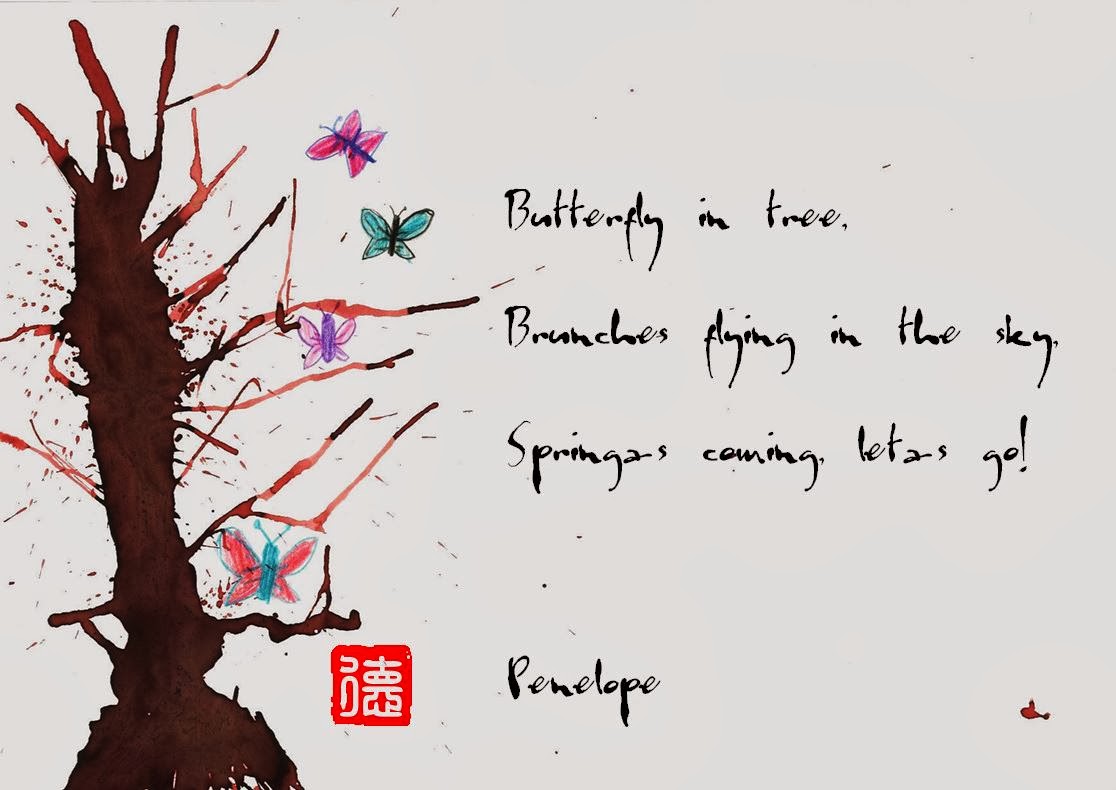 Butterfly in tree,
Brunches flying in the sky,
Springas coming, letas go!
Penelope
德